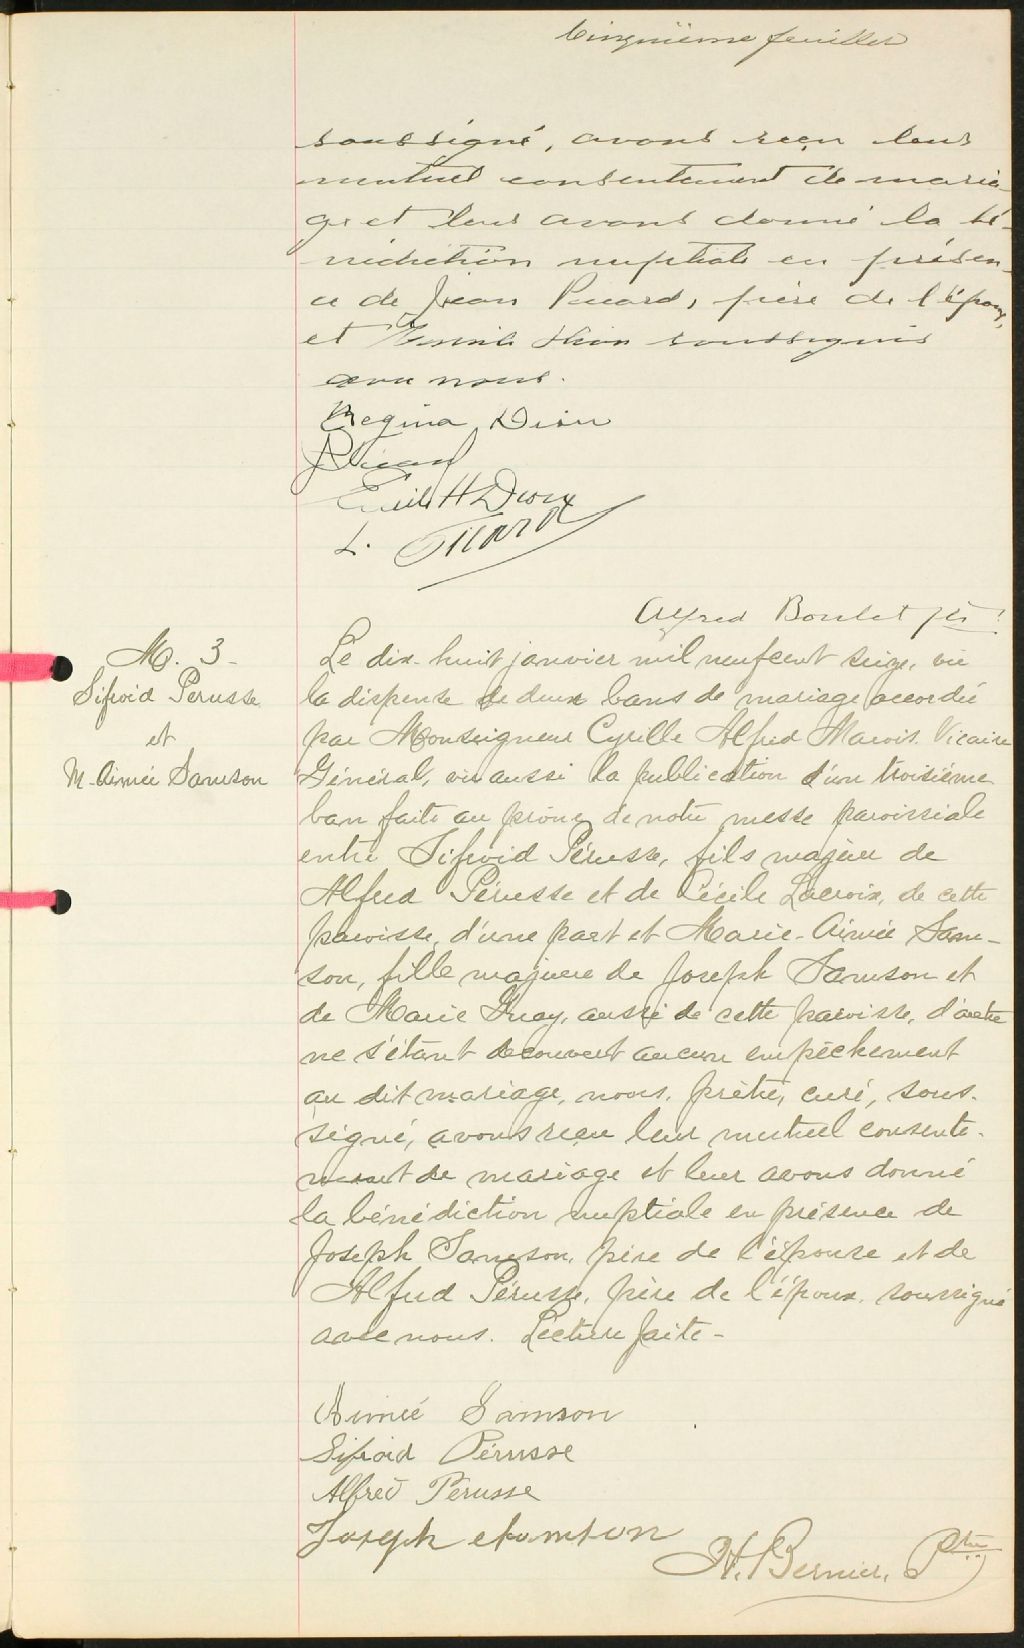 Cinquième feuillet
soussigné, avons reçu leur
mutuel consentement de maria-
ge et leur avons donné la bé-
nédiction nuptiale en présen-
ce de Jean Picard, père de l'époux,
et Emile Dion soussignés
avec nous.
Regina Dion
JPicard
Emile H Dion
L. Picard
Alfred Boulet ptr
M. 3-
Sifroid Perusse
et
M-Aimée Samson
Le dix-huit janvier mil neuf cent seize, vu
la dispense de deux bans de mariage accordée
par Monseigneur Cyrille Alfred Marois Vicaire
Général, vu aussi la publication d'un troisième
ban faite au prône de notre messe paroissiale
entre Sifroid Pérusse, fils majeur de
Alfred Pérusse et de Cécile Lacroix, de cette
paroisse, d'une part et Marie-Aimée Sam-
son, fille majeure de Joseph Samson et
de Marie Guay, aussi de cette paroisse, d'autre
ne s'étant découvert aucun empêchement
au dit mariage, nous, prêtre, curé, sous-
signé, avons reçu leur mutuel consente-
ment de mariage et leur avons donné
la bénédiction nuptiale en présence de
Joseph Samson, père de l'épouse et de
Alfred Pérusse, père de l'époux, soussigné
avec nous. Lecture faite-
Aimée Samson
Sifroid Pérusse
Alfred Pérusse
Joseph Samson
H. Bernier, Ptre